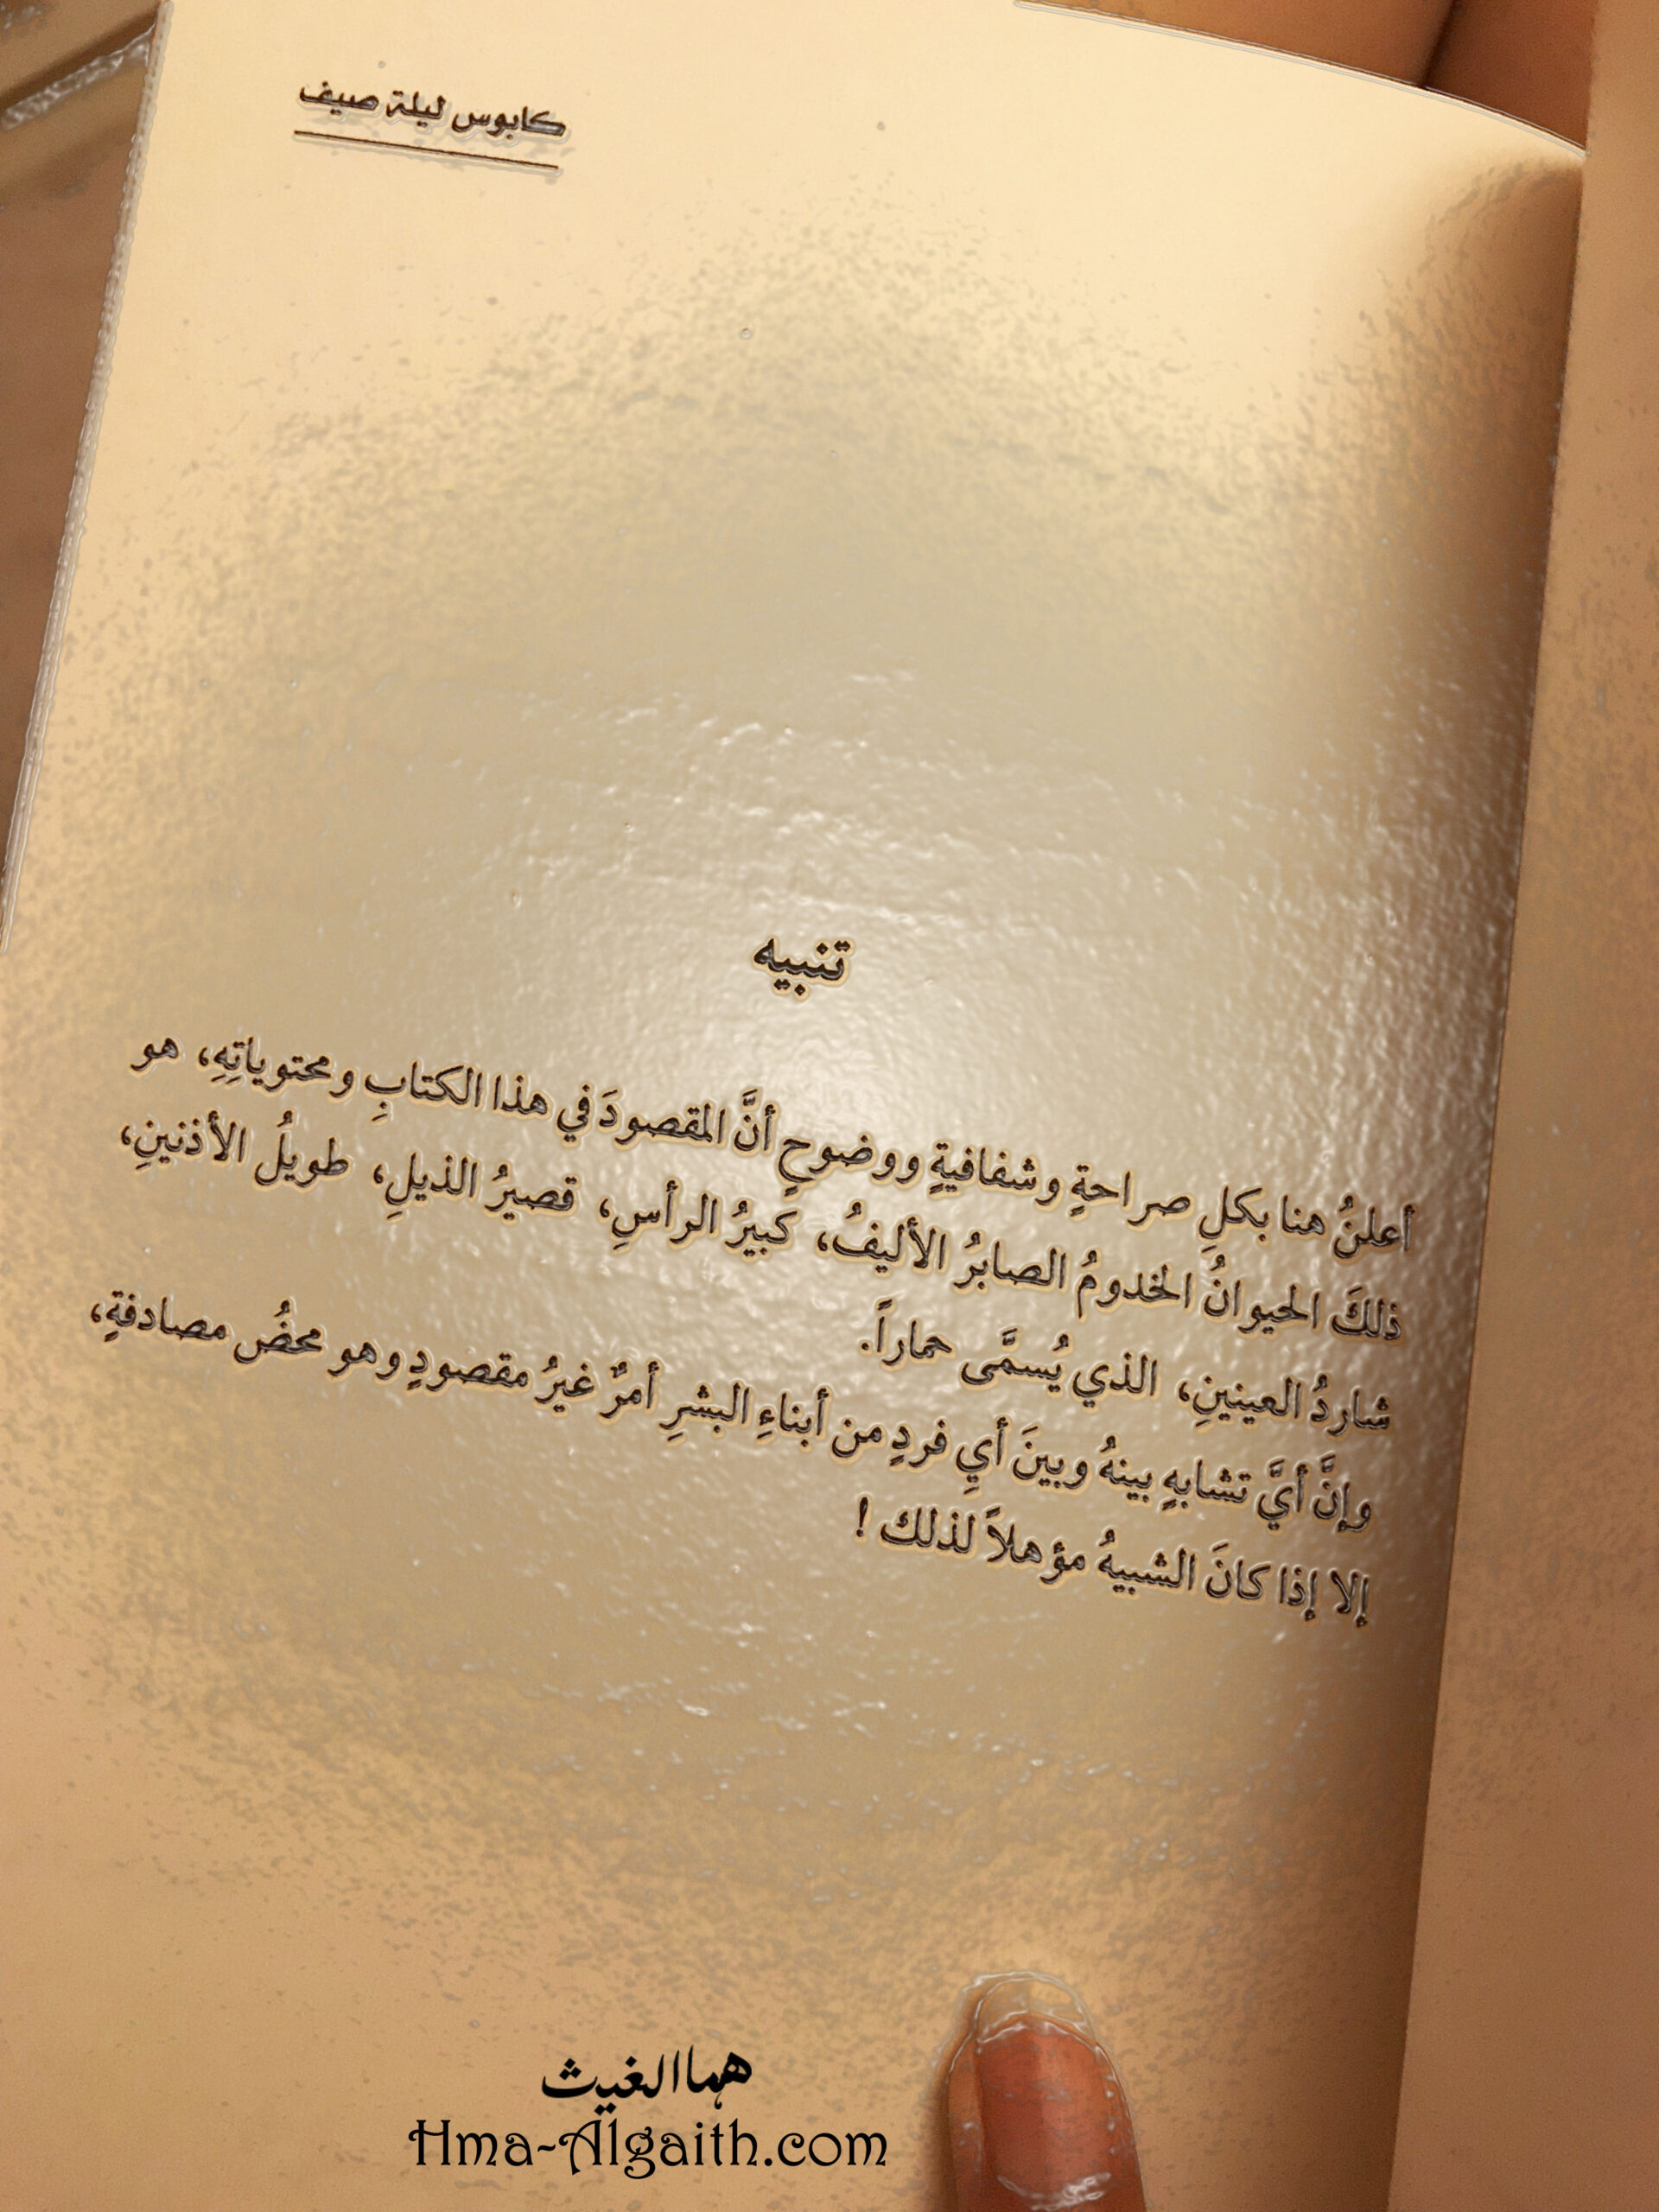 كابوس ليلة صيف
تنبيه
أعلنُ هنا بكلِ صراحةٍ وشفافيةٍ ووضوحٍ أنَّ المقصودَ في هذا الكتابِ ومحتوياتِهِ، هو
ذلكَ الحيوانُ الخدومُ الصابرُ الأليفُ، كبيرُ الرأسِ، قصيرُ الذيلِ، طويلُ الأذنينِ،
شاردُ العينينِ، الذي يُسمَّى حماراً.
وإنَّ أيَّ تشابهٍ بينهُ وبينَ أيِ فردٍ من أبناءِ البشرِ أمرٌ غيرُ مقصودٍ وهو محضُ مصادفةٍ،
إلا إذا كانَ الشبيهُ مؤهلاً لذلك !
هما الغيث
Hma-Algaith.com